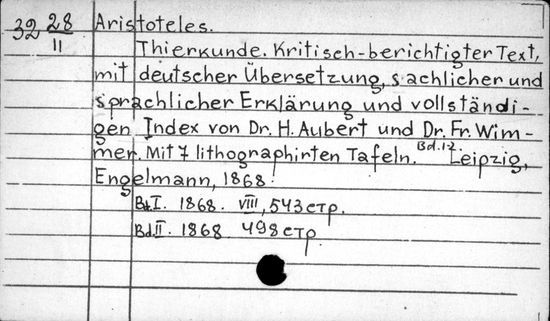 32 28/II Aristoteles.
Thierkunde. Kritisch-berichtigter Text,
mit deutscher Übersetzung, sachlicher und
sprachlicher Erklärung und vollständi-
gen Index von Dr. H. Aubert und Dr. Fr. Wim-
mer. Mit 7 lithographirten Tafeln. Bd. 1-2. Leipzig,
Engelmann, 1868.
Bd. I. 1868. VIII, 543 стр.
Bd. II. 1868 498 стр